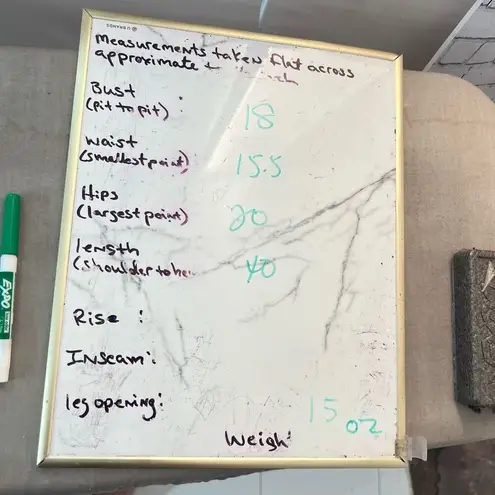 U BRANDS
measurements taken flat across
approximate
Bust :
(pit to pit) 18
Waist
(smallest point) 15.5
Hips
(largest point) 20
length
(shoulder to he 40
Rise :
Inseam:
leg opening:
15 oz
Weigh:
EXPO